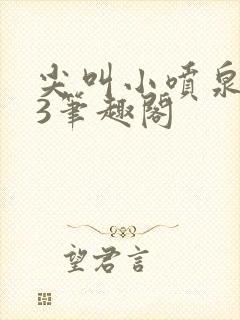 尖叫小喷泉
3笔趣阁
望君言